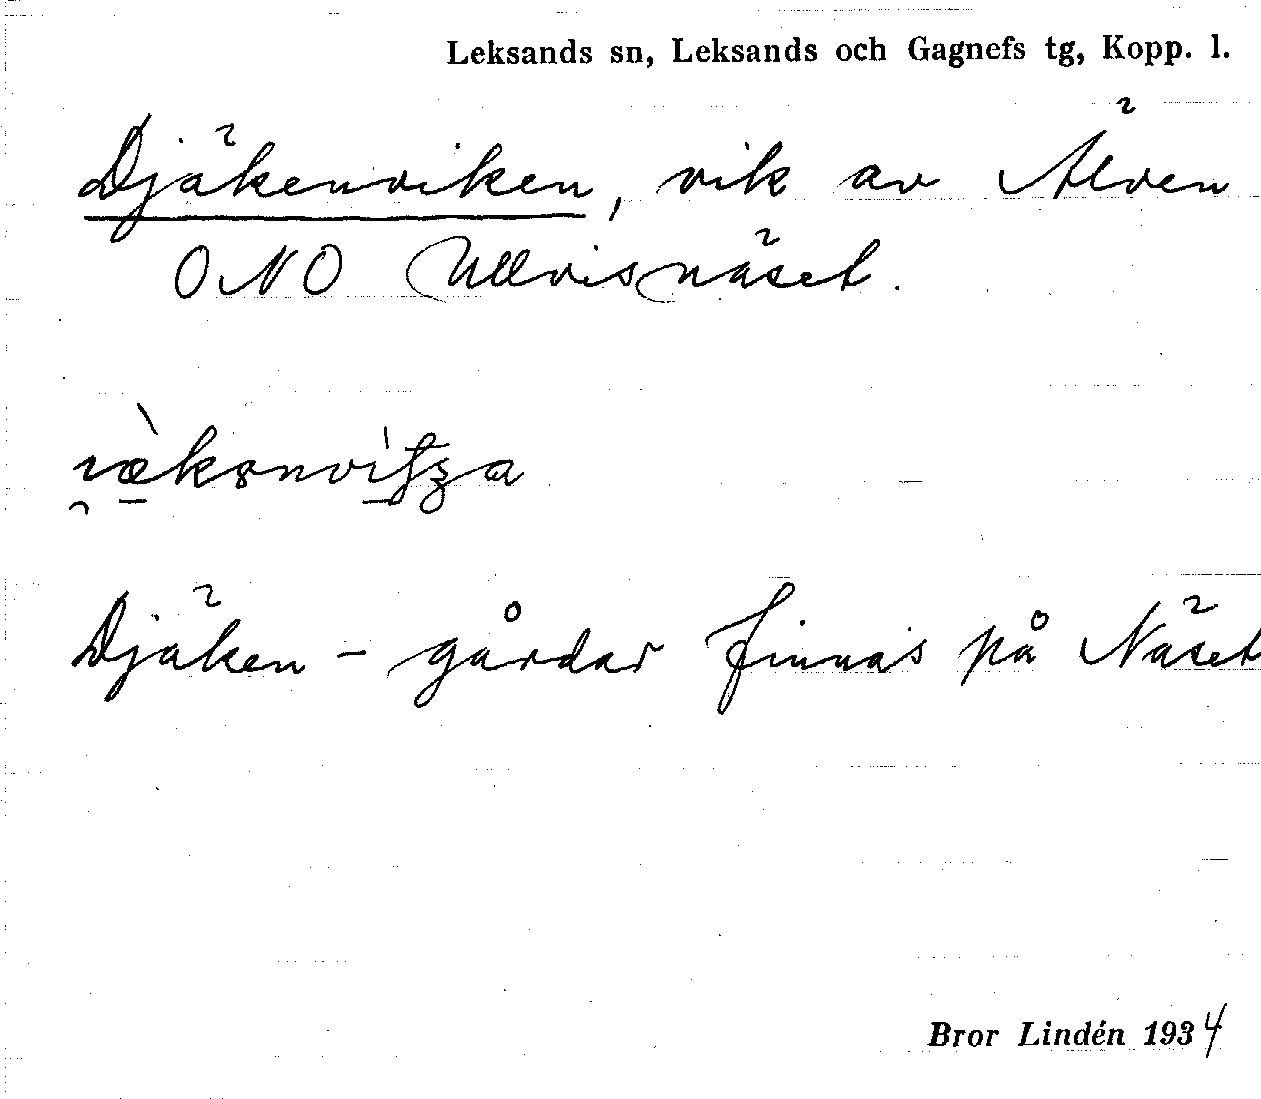 Leksands sn, Leksands och Gagnefs tg, Kopp. l.
Djäkenviken, vik av Älven
ONO Ullvisnäset.
Djäken - gårdar finnas på Näset
Bror Lindén 1934